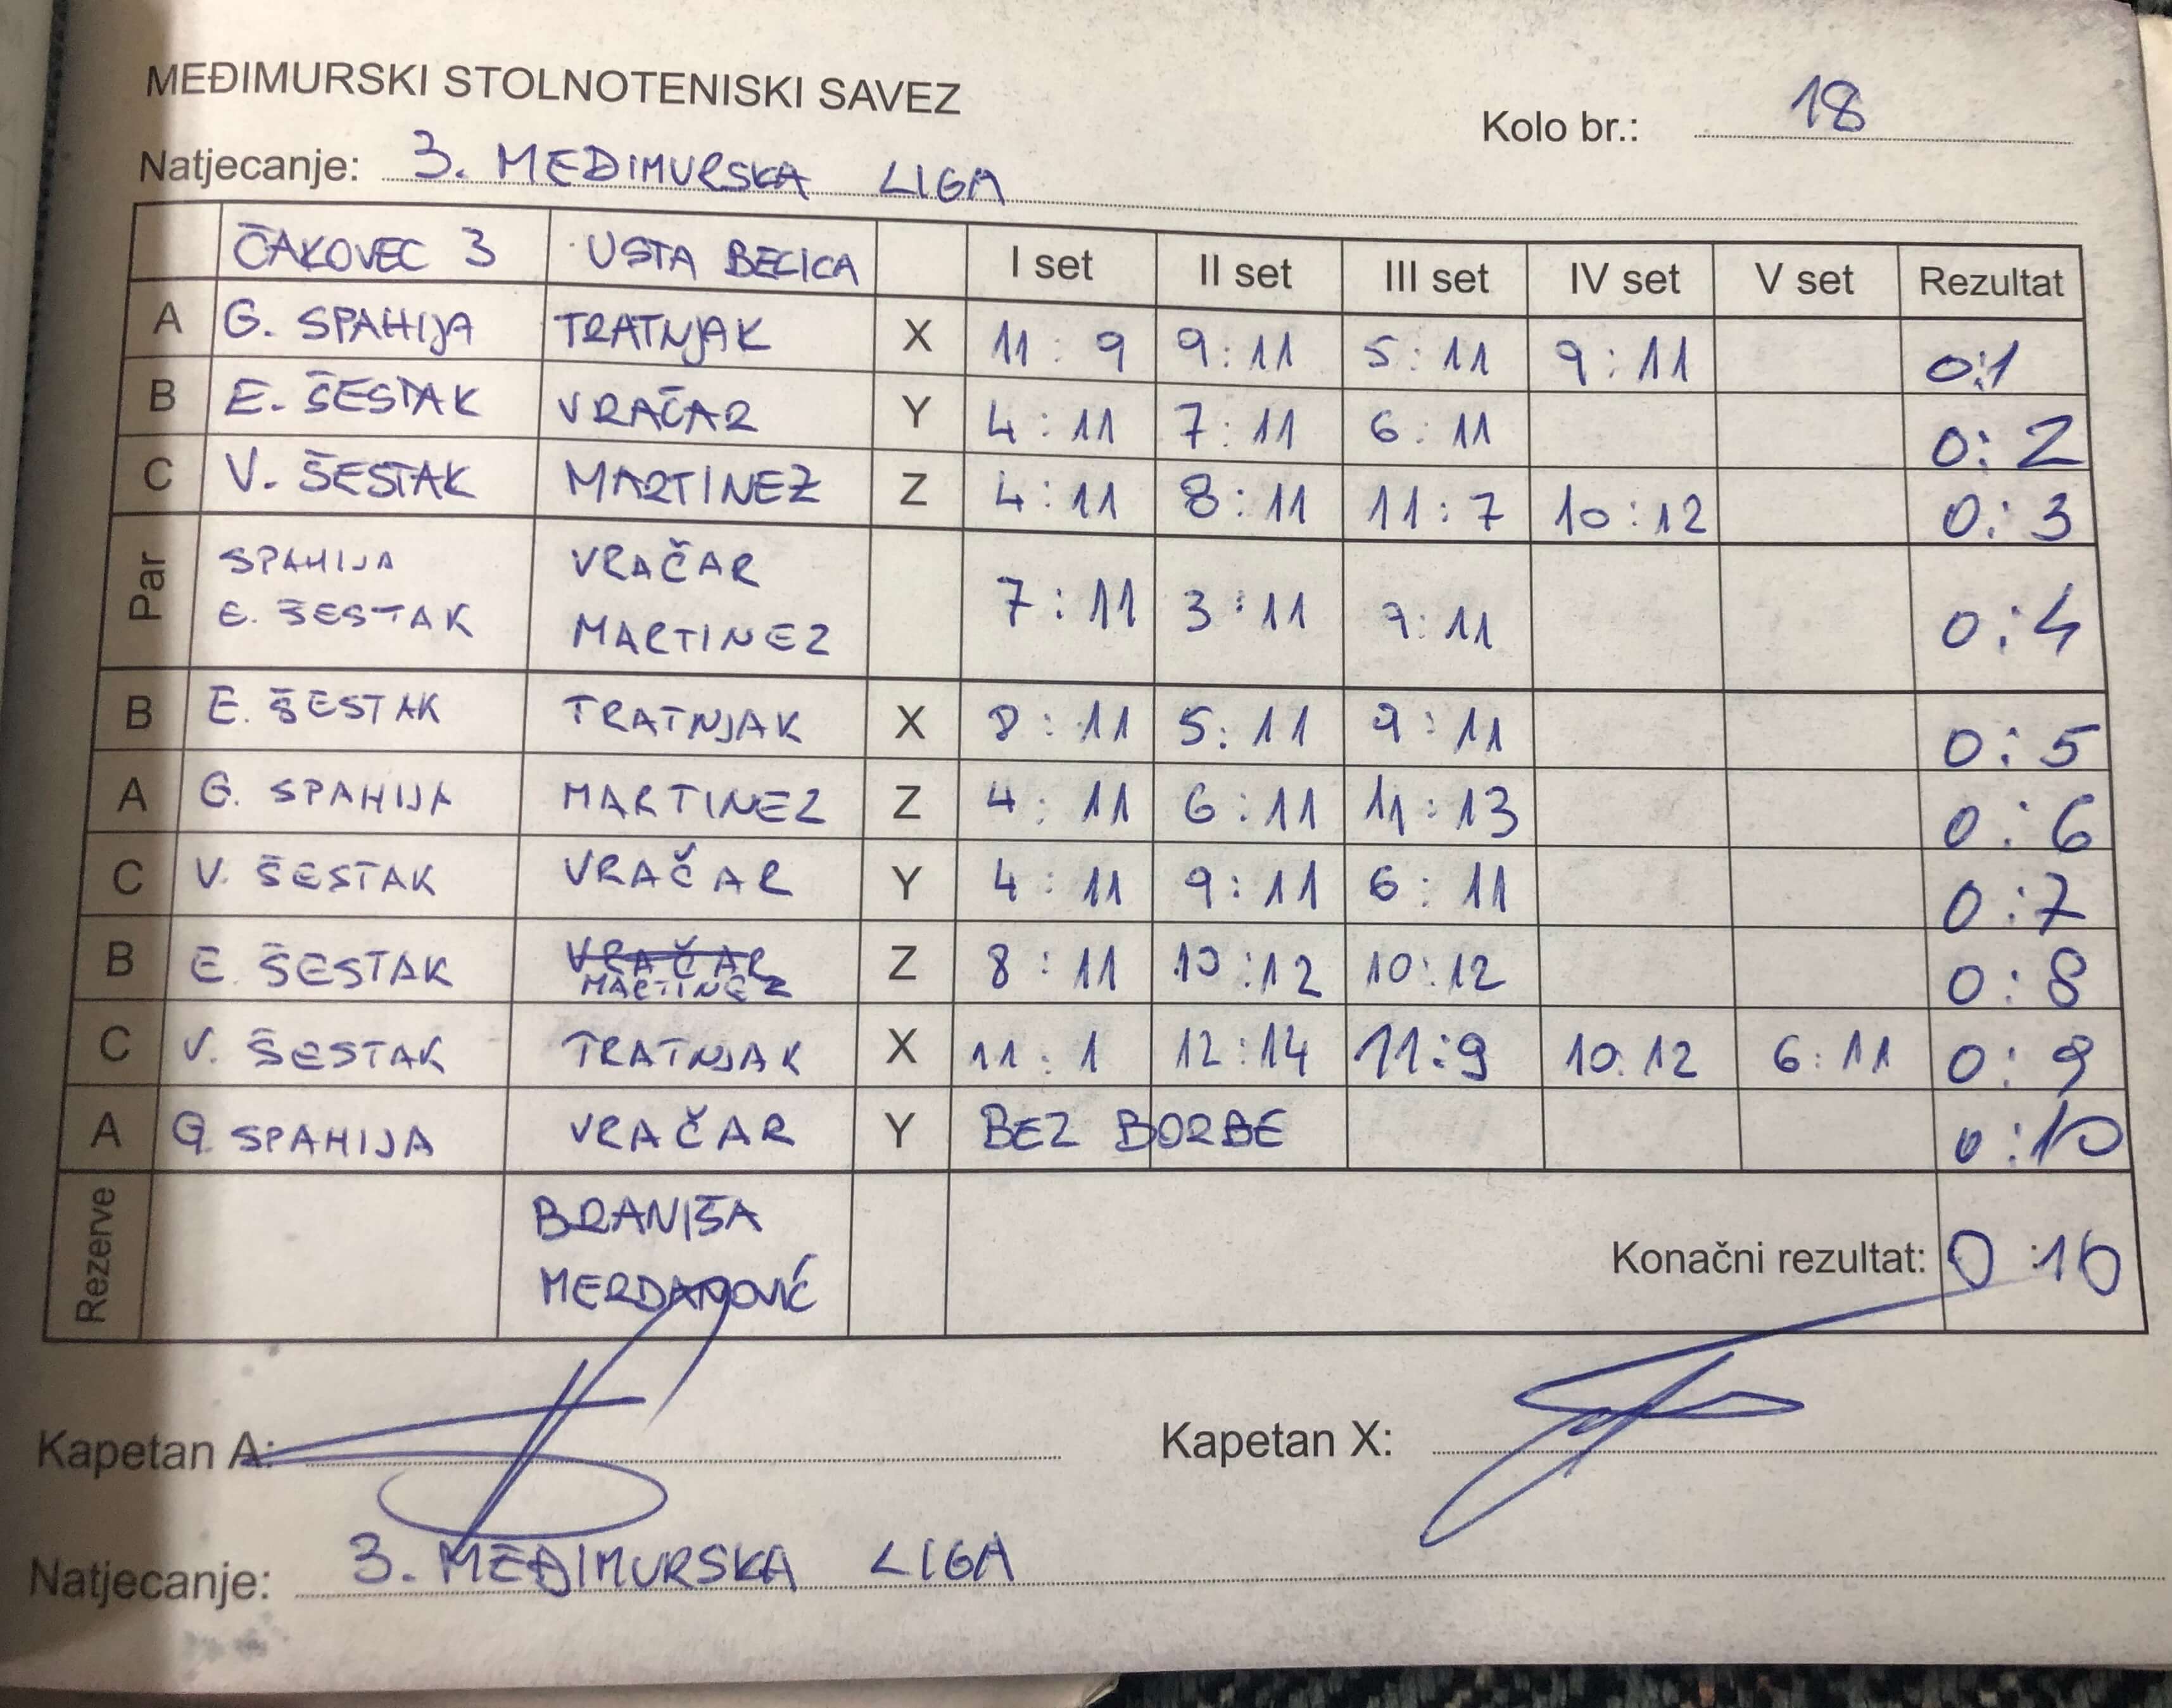 MEĐIMURSKI STOLNOTENISKI SAVEZ
Kolo br.: 18
Natjecanje: 3. MEĐIMURSKA LIGA
ČAKOVEC 3 USTA BECICA I set II set III set IV set V set Rezultat
A G. SPAHIJA TRATNJAK X 11:9 9:11 5:11 9:11 0:1
B E. ŠESTAK VRAČAR Y 4:11 7:11 6:11 0:2
C V. ŠESTAK MARTINEZ Z 4:11 8:11 11:7 10:12 0:3
Par SPAHIJA VRAČAR 7:11 3:11 9:11 0:4
E. ŠESTAK MARTINEZ
B E. ŠESTAK TRATNJAK X 8:11 5:11 9:11 0:5
A G. SPAHIJA MARTINEZ Z 4:11 6:11 11:13 0:6
C V. ŠESTAK VRAČAR Y 4:11 9:11 6:11 0:7
B E ŠESTAK VRAČAR Z 8:11 10:12 10:12 0:8
MARTINEZ
C V. ŠESTAK TRATNJAK X 11:1 12:14 11:9 10.12 6:11 0:9
A G. SPAHIJA VRAČAR Y BEZ BORBE 0:10
Rezerve BRANIŠA Konačni rezultat: 0:10
MERDANOVIĆ
Kapetan A: Kapetan X:
Natjecanje: 3. MEĐIMURSKA LIGA